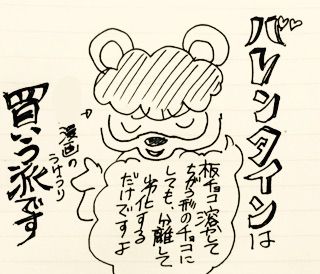 バレンタインは
板チョコ溶かして
ちがう形のチョコに
しても、分離して
劣化する
だけですよ
漫画の
うけうり
買う派です